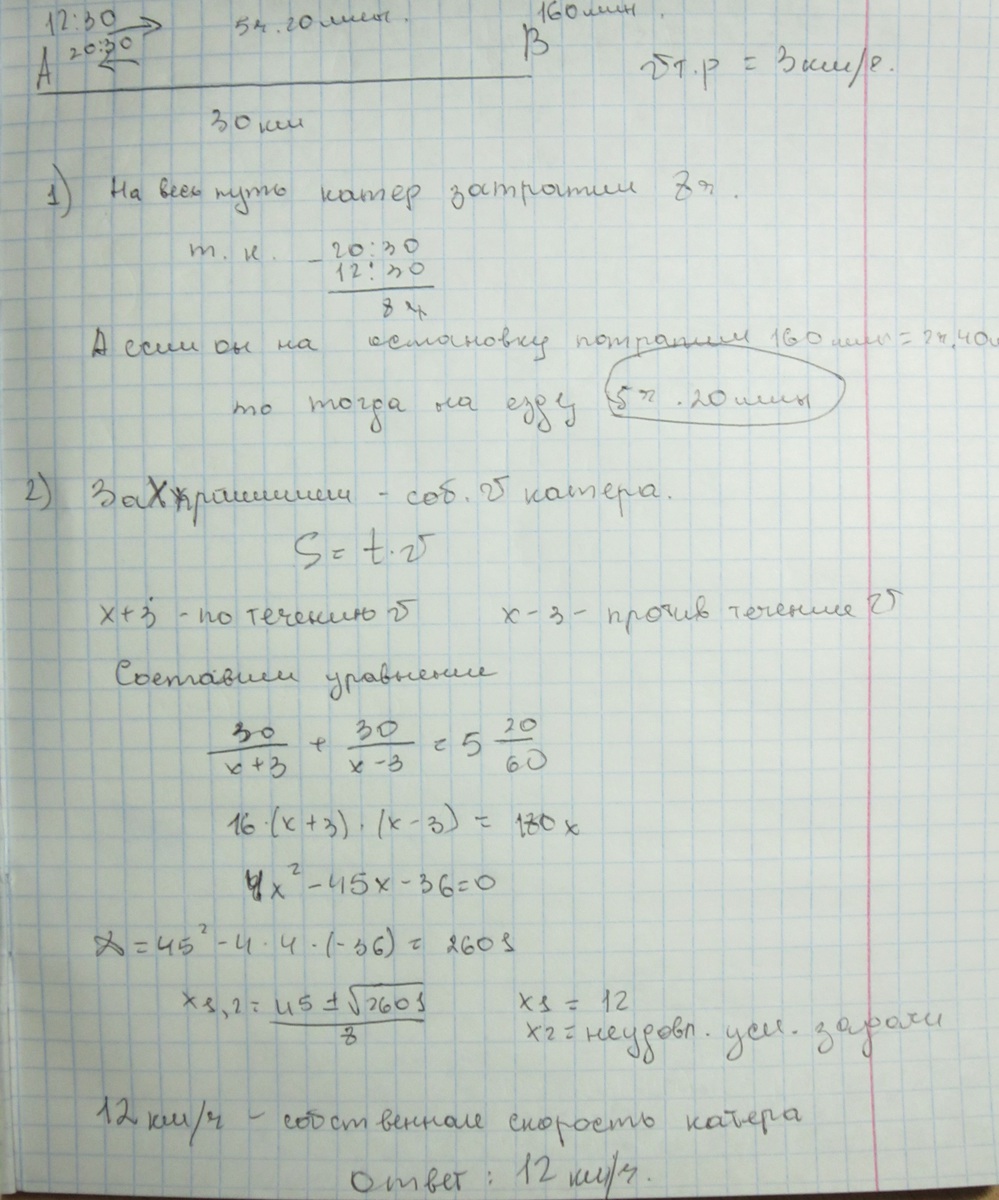 12:30 5ч. 20мин. 160 мин.
A 20:30 B
vт.р = 3 км/ч.
30 км
1) На весь путь катер затратил 8ч.
т. к. - 20:30
12:30
8ч
А если он на остановку потратил 160 мин = 2ч.40м
то тогда на езду 5ч. 20мин
2) За X - соб. v катера.
S = t·v
x+3 - по течению v x-3 - против течение v
Составим уравнение
30/(x+3) + 30/(x-3) = 5 20/60
16·(x+3)·(x-3) = 180x
4x² - 45x - 36 = 0
D = 45² - 4·4·(-36) = 2601
x1,2 = (45 ± √2601)/8 x1 = 12
x2 = неудовл. усл. задачи
12 км/ч - собственная скорость катера
Ответ: 12 км/ч.